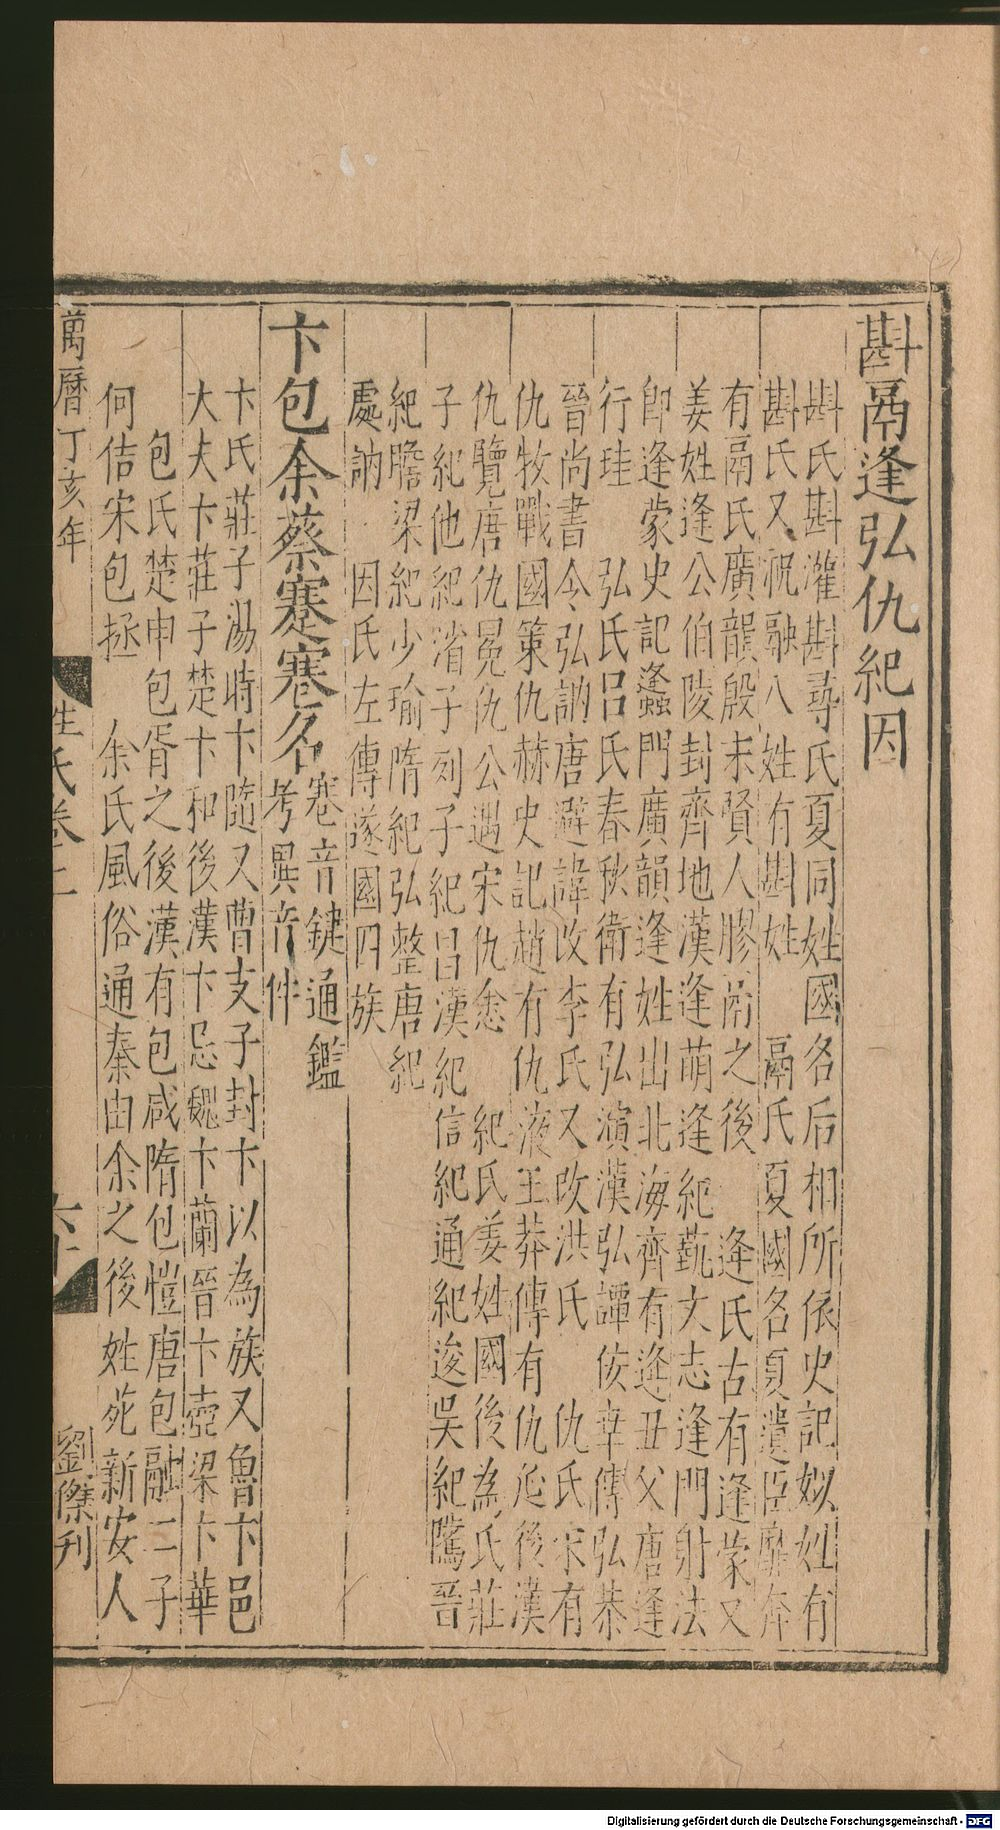 斟鬲逢弘仇紀因
斟氏斟灌斟尋氏夏同姓國名后相所依史記姒姓有
斟氏又祝融八姓有斟姓　鬲氏夏國名夏遺臣靡奔
有鬲氏廣韻殷末賢人膠鬲之後　逄氏古有逢蒙又
姜姓逢公伯陵封齊地漢逢萌逢紀藝文志逢門射法
卽逢蒙史記逢門廣韻逢姓出北海齊有逄丑父唐逢
行珪　弘氏呂氏春秋衛有弘演漢弘譚佞幸傳弘恭
晉尚書令弘訥唐避諱改李氏又改洪氏　仇氏宋有
仇牧戰國策仇赫史記趙有仇液王莽傳有仇延後漢
仇覽唐仇冕仇公遇宋仇悆　紀氏姜姓國後為氏莊
子紀他紀渻子列子紀昌漢紀信紀通紀逡吳紀騭晉
紀瞻梁紀少瑜隋紀弘整唐紀
處訥　因氏左傳遂國四族
卞包余蔡蹇騫名
騫音鍵通鑑
考異音件
卞氏莊子湯時卞隨又曹支子封卞以為族又魯卞邑
大夫卞莊子楚卞和後漢卞忌魏卞蘭晉卞壺梁卞華
包氏楚申包胥之後漢有包咸隋包愷唐包融二子
何佶宋包拯　余氏風俗通秦由余之後姓苑新安人
萬曆丁亥年
姓氏卷上
六十
劉傑刊
Digitalisierung gefördert durch die Deutsche Forschungsgemeinschaft - DFG